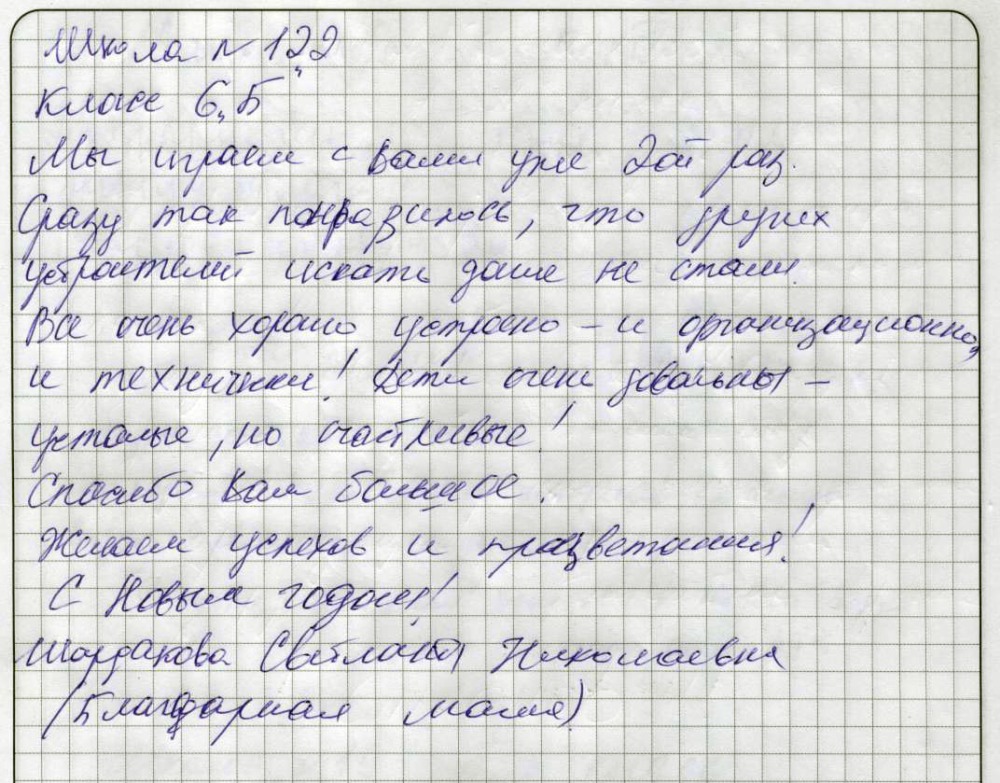 Школа № 122
Класс 6 "Б"
Мы играем с Вами уже 2ой раз.
Сразу так понравилось, что других
устроителей искать даже не стали.
Все очень хорошо устроено – и организационно,
и технически! Дети очень довольны –
усталые, но счастливые!
Спасибо Вам большое.
Желаем успехов и процветания!
С Новым годом!
Шардакова Светлана Николаевна
(Благодарная мама)